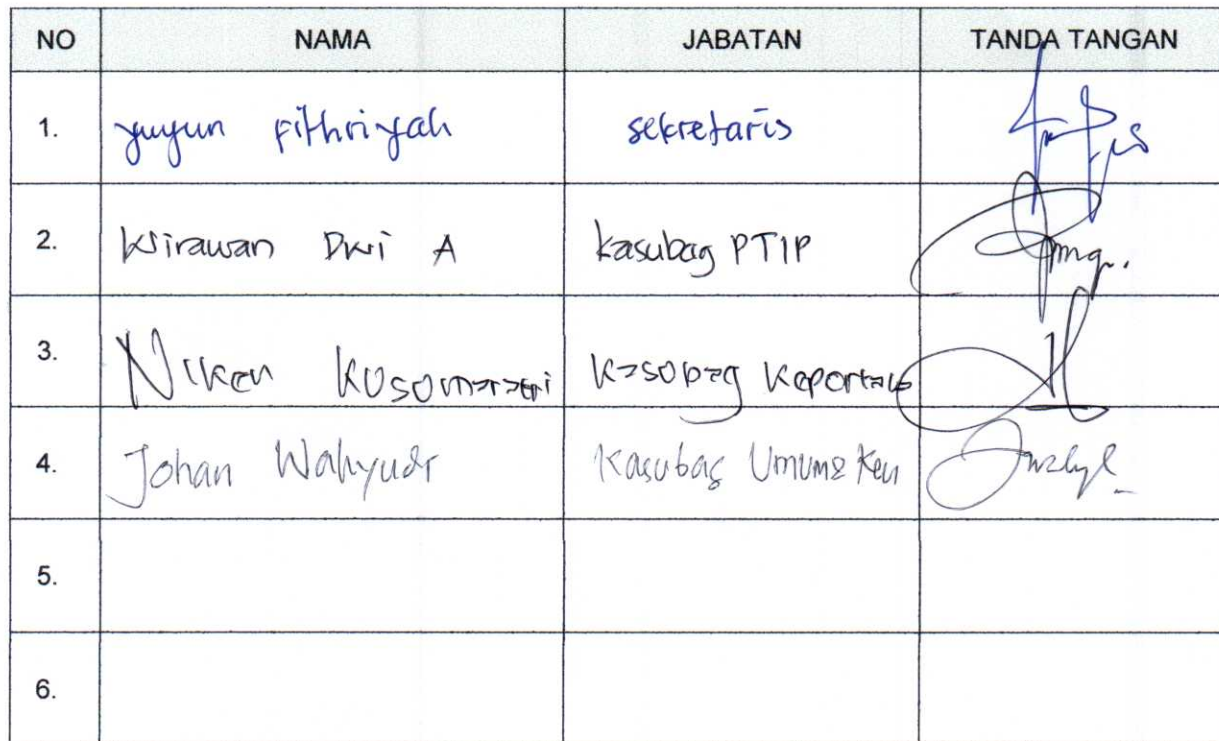 NO NAMA JABATAN TANDA TANGAN
1. yuyun Fithriyah sekretaris
2. Wirawan Dwi A kasubag PTIP
3. Niken Kusomarastri Kasobag Keportala
4. Johan Wahyudi Kasubag Umum & Keu
5.
6.